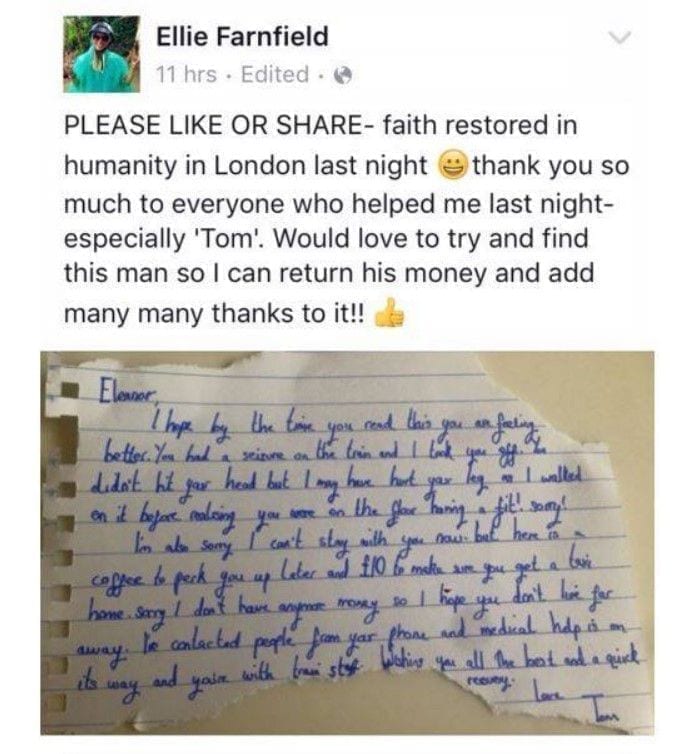 Ellie Farnfield
11 hrs · Edited ·
PLEASE LIKE OR SHARE- faith restored in
humanity in London last night 😀 thank you so
much to everyone who helped me last night-
especially 'Tom'. Would love to try and find
this man so I can return his money and add
many many thanks to it!! 👍
Eleanor,
I hope by the time you read this you are feeling
better. You had a seizure on the train and I took you off. You
didn't hit your head but I may have hurt your leg as I walked
on it before realising you were on the floor having a fit! sorry!
I'm also sorry I can't stay with you now. but here is a
coffee to perk you up later and £10 to make sure you get a taxi
home. sorry I don't have anymore money so I hope you don't live far
away. I've contacted people from your phone and medical help is on
its way and you're with train staff. Wishing you all the best and a quick
recovery. Love
Tom